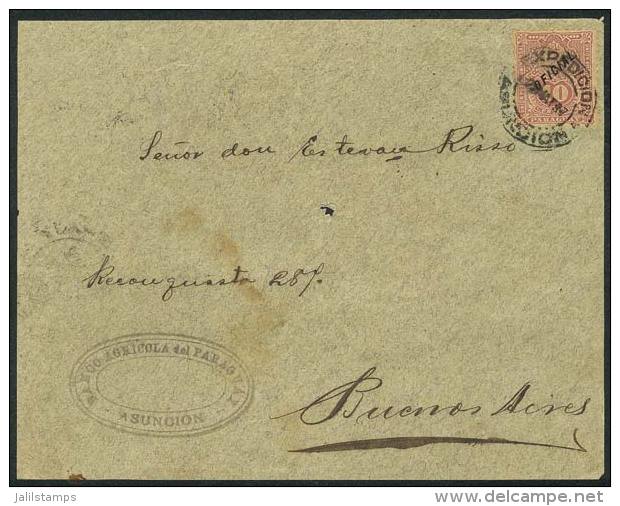 EXPEDICION
ASUNCION
PARAGUAY
Señor don Estevan Risso
Reconquista 287.
BANCO AGRICOLA del PARAGUAY
ASUNCION
Buenos Aires
jalilstamps
www.delcampe.net